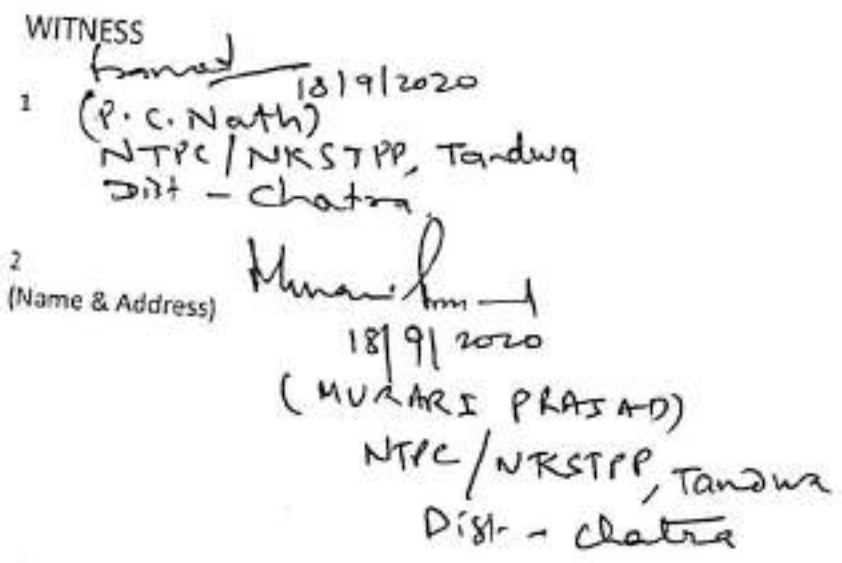 WITNESS
18/9/2020
1 (P. C. Nath)
NTPC/NKSTPP, Tandwa
Dist - Chatra.
2
(Name & Address)
18/9/2020
(MURARI PRASAD)
NTPC/NKSTPP, Tandwa
Dist - Chatra